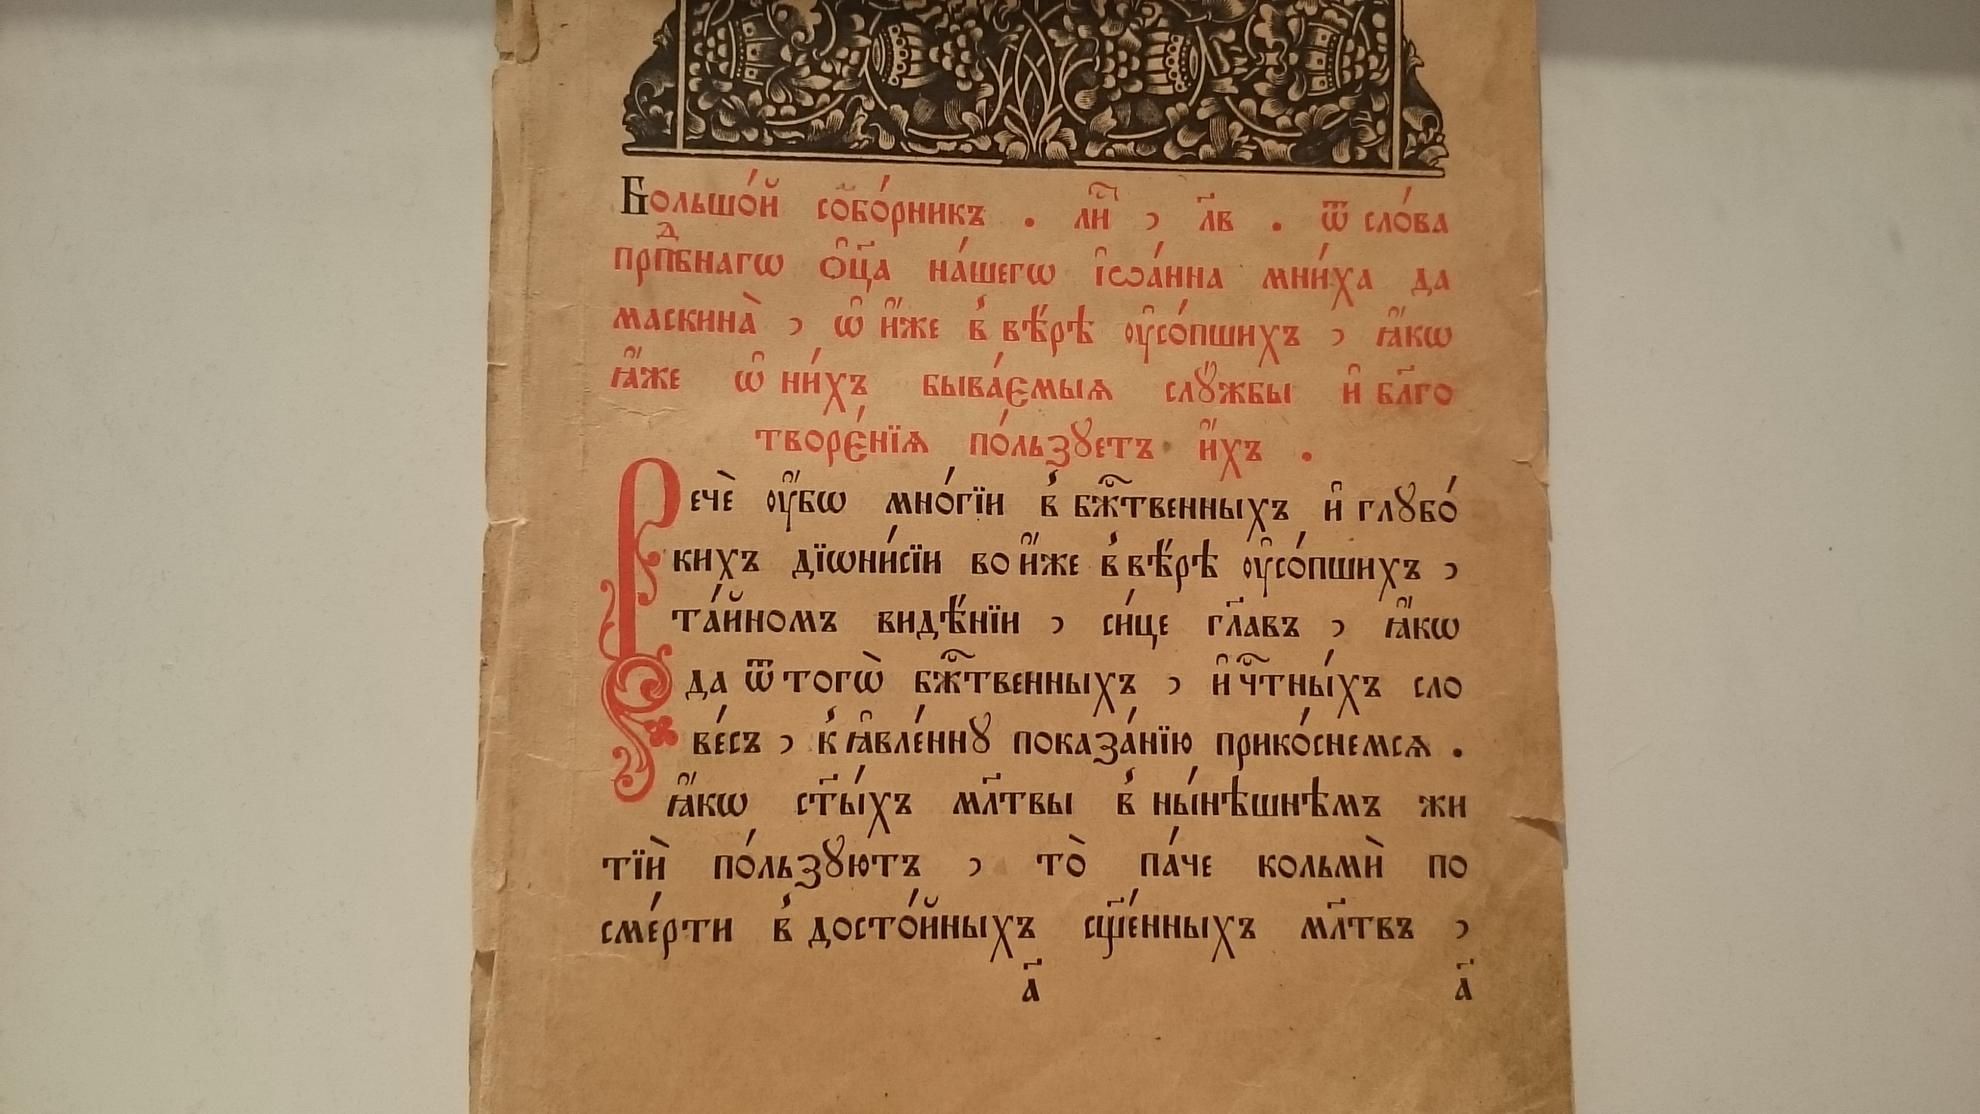 Большо́й со̑бо́рникъ . ли̑с , л҃в . ѿ сло́ва
прпⷣбнагѡ ѻ҆ц҃а на́шегѡ і҆ѡа́нна мни́ха да
маскина̀ , ѡ҆ и҆́же в̾ вѣ́рѣ ᲂу҆со́пшихъ , ꙗ҆́кѡ
ꙗ҆́же ѡ҆ ни́хъ быва́емыѧ слꙋ́жбы и҆ бл҃го
творе́нїѧ по́льзꙋетъ и҆́хъ .
Речѐ ᲂу҆́бѡ мно́гїи в̾ бж҇твенныхъ и҆ глꙋбо́
кихъ дїѡни́сїи во и҆́же в̾ вѣ́рѣ ᲂу҆со́пшихъ ,
та́йномъ видѣ́нїи , си́це гл҃авъ , ꙗ҆́кѡ
да ѿ тогѡ̀ бж҇твенныхъ , и҆ ч҇тны́хъ сло
ве́съ , к̾ ꙗ҆вле́ннꙋ показа́нїю прико́снемсѧ .
ꙗ҆́кѡ ст҃ы́хъ мл҃твы в̾ ны́нѣшнѣмъ жи
тїѝ по́льзꙋютъ , то̀ па́че кольмѝ по
сме́рти в̾ досто́йныхъ сщ҃е́нныхъ мл҃твъ ,
а҃ а҃